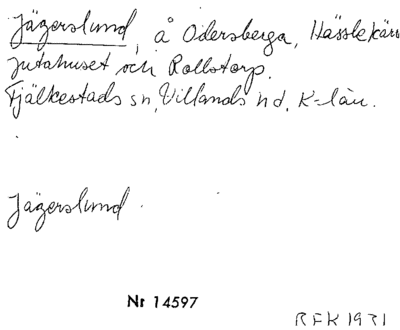 Jägerslund, å Odersberga, Hässlekärr
Jutahuset och Rollstorp.
Fjälkestads sn, Villands hd, K-län.
Jägerslund.
Nr 14597
REK 1931